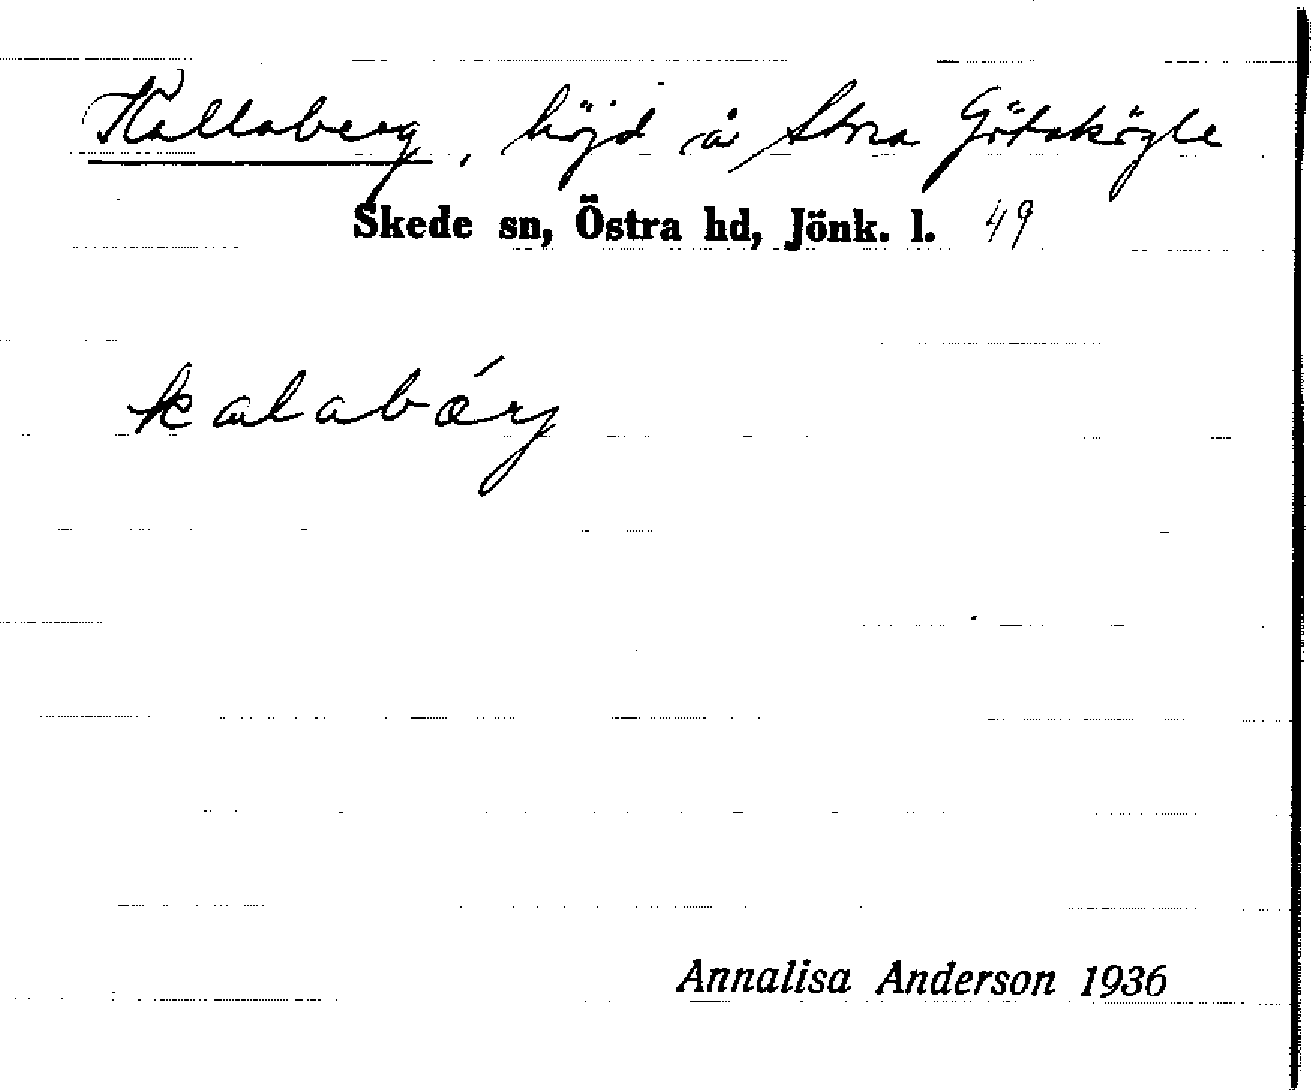 Kallaberg, höjd å Stora Götakögle
Skede sn, Östra hd, Jönk. l. 49
kalabárj
Annalisa Anderson 1936